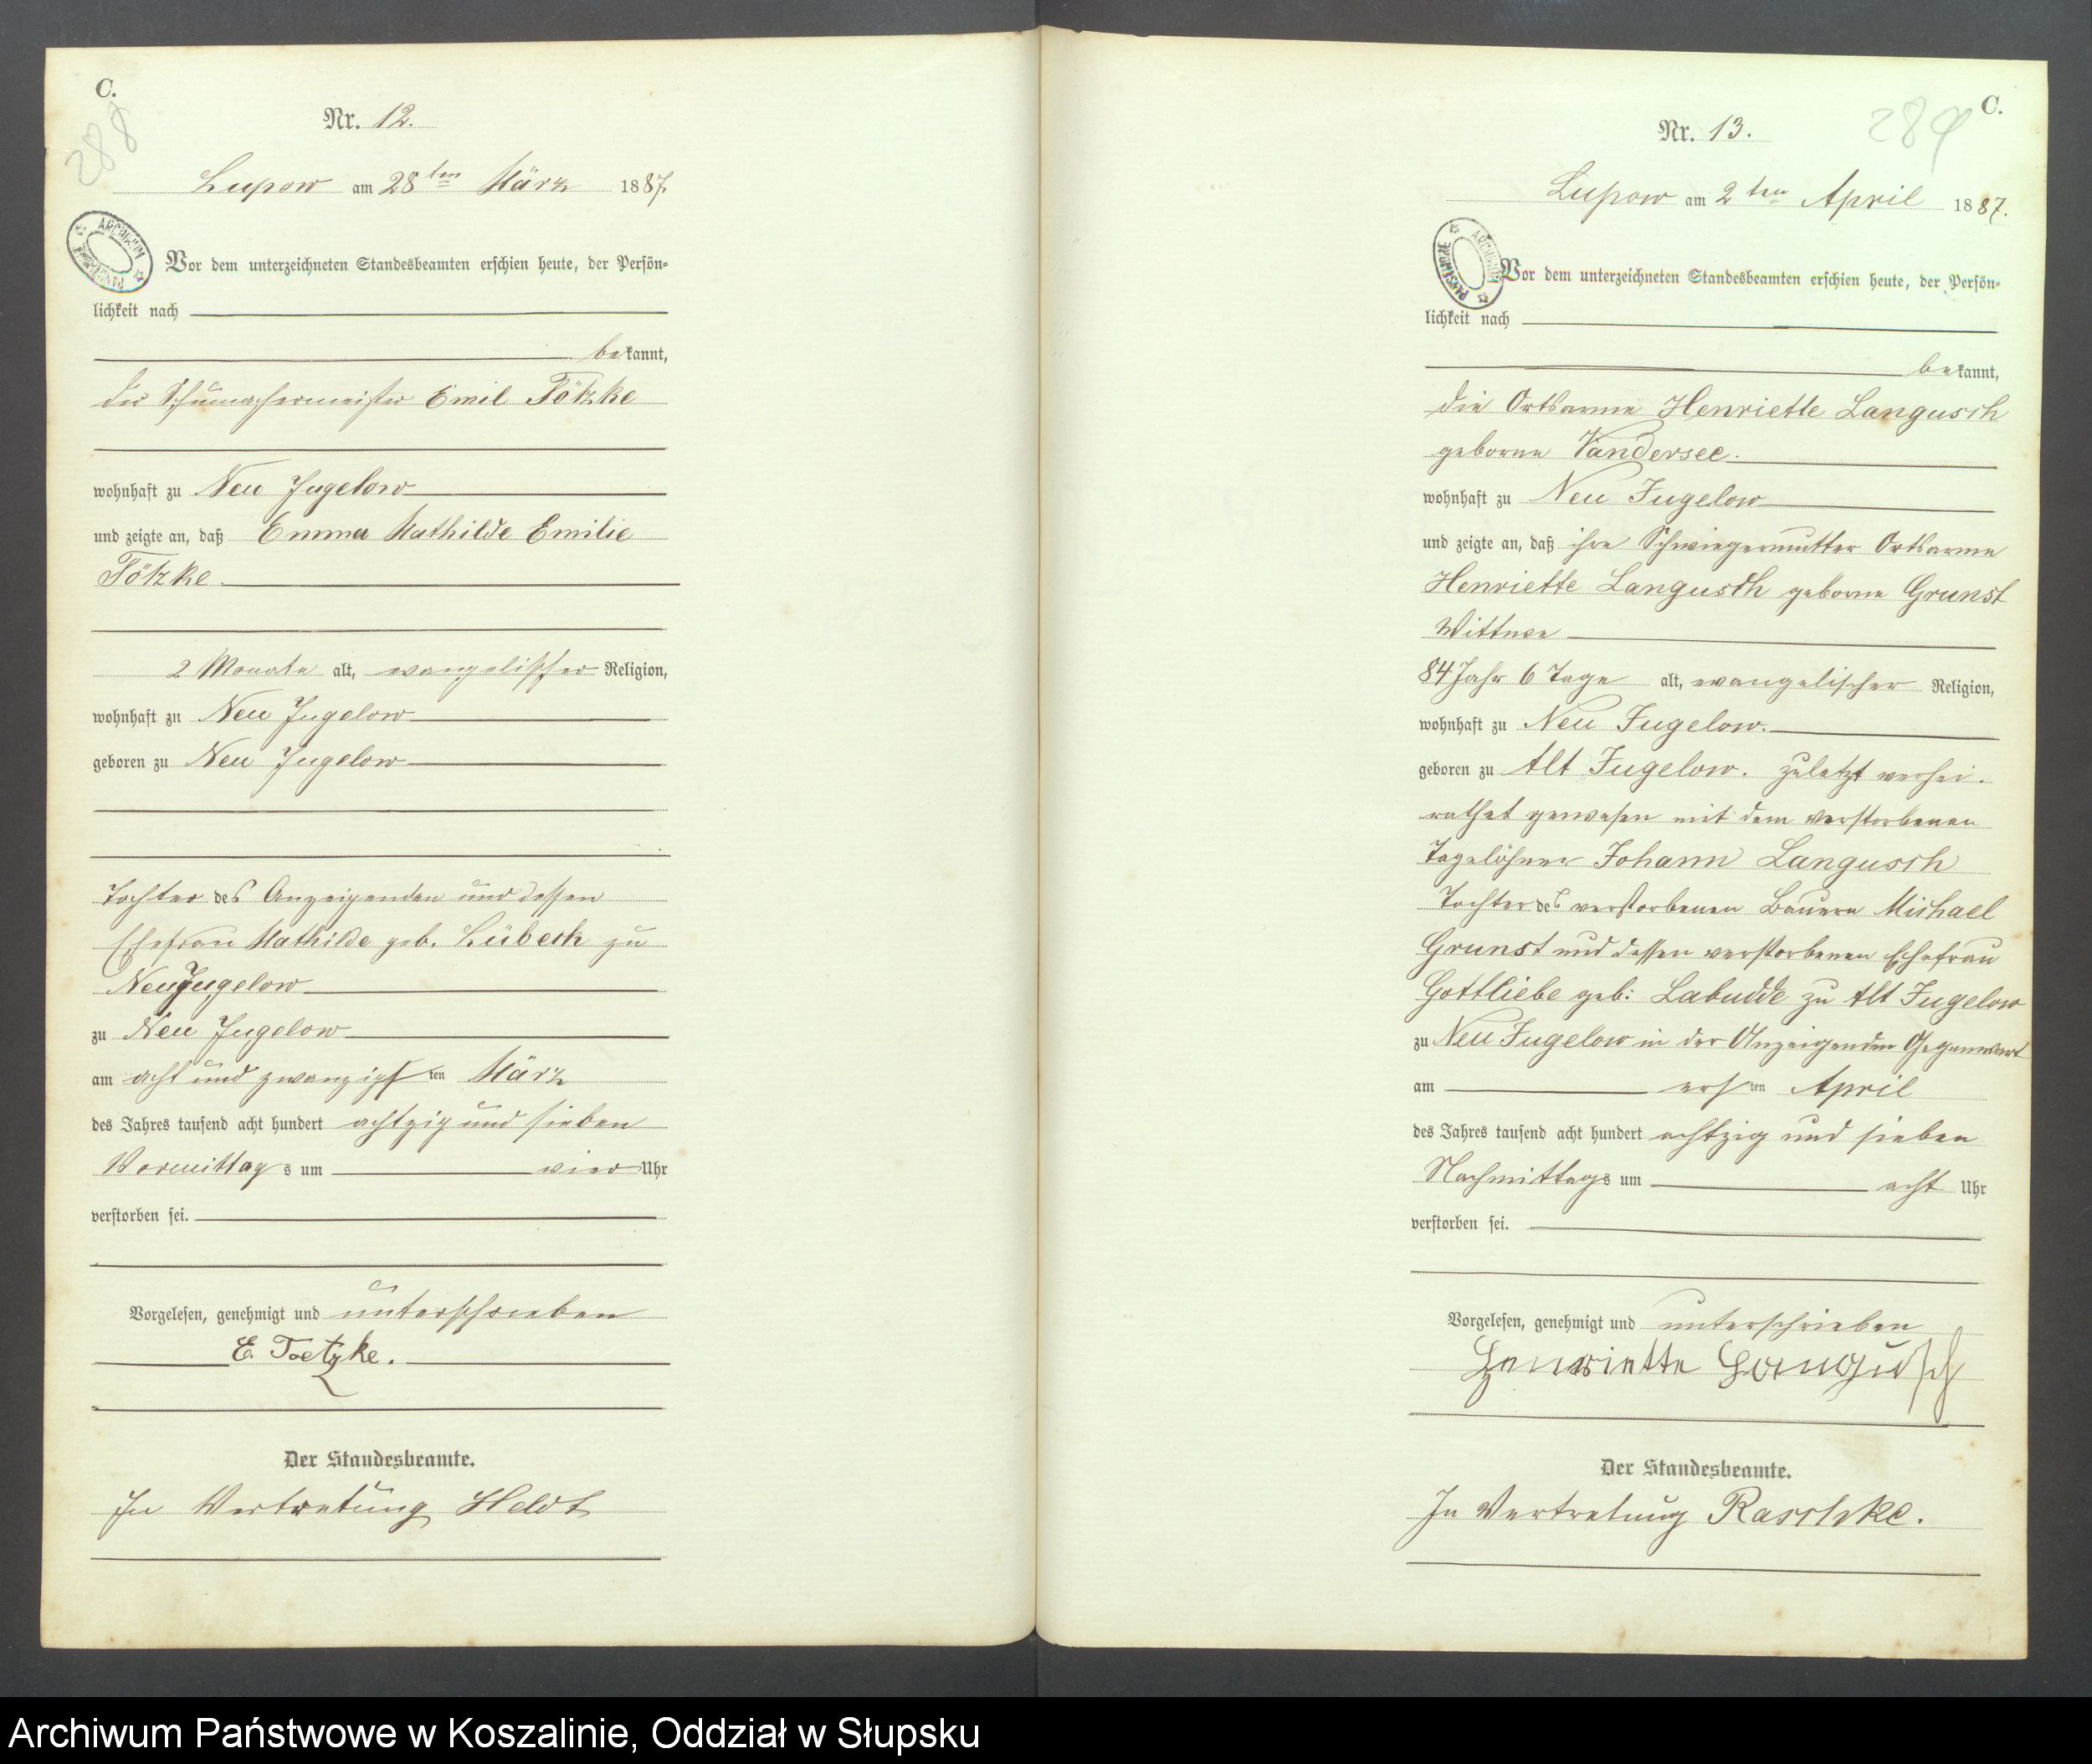 C.
288
Nr. 12.
Lupow am 28ten März 1887.
ARCHIWUM PAŃSTWOWE
Vor dem unterzeichneten Standesbeamten erschien heute, der Persön-
lichkeit nach
bekannt,
der Schumachermeister Emil Tötzke
wohnhaft zu Neu Jugelow
und zeigte an, daß Emma Mathilde Emilie
Tötzke
2 Monate alt, evangelischer Religion,
wohnhaft zu Neu Jugelow
geboren zu Neu Jugelow
Tochter des Anzeigenden und dessen
Ehefrau Mathilde geb. Lübeck zu
Neu Jugelow
zu Neu Jugelow
am acht und zwanzigsten März
des Jahres tausend acht hundert achtzig und sieben
Vormittags um vier Uhr
verstorben sei.
Vorgelesen, genehmigt und unterschrieben
E. Toetzke.
Der Standesbeamte.
In Vertretung Heldt
C.
289
Nr. 13.
Lupow am 2ten April 1887.
ARCHIWUM PAŃSTWOWE
Vor dem unterzeichneten Standesbeamten erschien heute, der Persön-
lichkeit nach
bekannt,
die Ortsarme Henriette Langusch
geborne Vandersee.
wohnhaft zu Neu Jugelow
und zeigte an, daß ihre Schwiegermutter Ortsarme
Henriette Langusch geborne Grunst
Wittwe
84 Jahr 6 Tage alt, evangelischer Religion,
wohnhaft zu Neu Jugelow.
geboren zu Alt Jugelow. zuletzt verhei-
rathet gewesen mit dem verstorbenen
Tagelöhner Johann Langusch
Tochter des verstorbenen Bauern Michael
Grunst und dessen verstorbenen Ehefrau
Gottliebe geb: Labudde zu Alt Jugelow
zu Neu Jugelow in der Anzeigenden Gegenwart
am ersten April
des Jahres tausend acht hundert achtzig und sieben
Nachmittags um acht Uhr
verstorben sei.
Vorgelesen, genehmigt und unterschrieben
Henriette Langusch
Der Standesbeamte.
In Vertretung Raschke.
Archiwum Państwowe w Koszalinie, Oddział w Słupsku